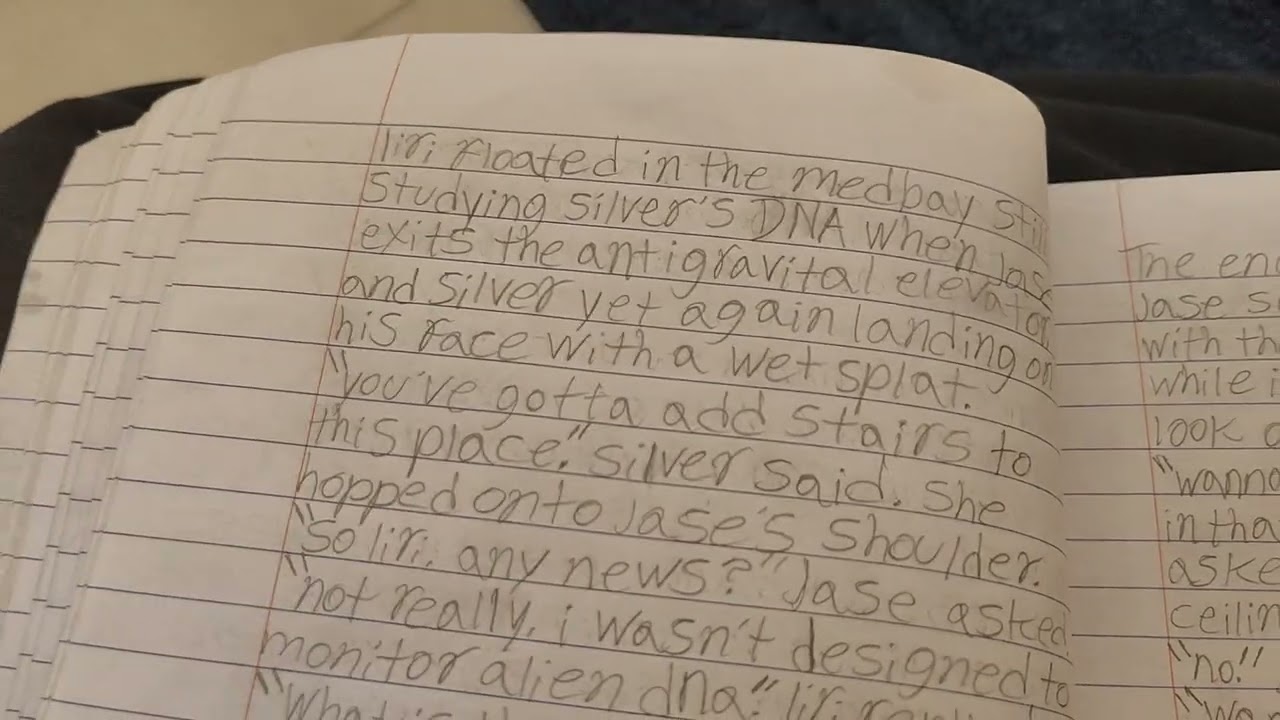 liri floated in the medbay still
Studying Silver's DNA when Jase
exits the antigravital elevator
and Silver yet again landing on
his face with a wet splat.
"you've gotta add stairs to
this place." Silver said. She
hopped onto Jase's shoulder.
"So liri, any news?" Jase asked
"not really, i wasn't designed to
monitor alien dna." liri
"What is
The en
Jase s
with th
while i
look
"wanna
in tha
aske
ceilin
"no!"